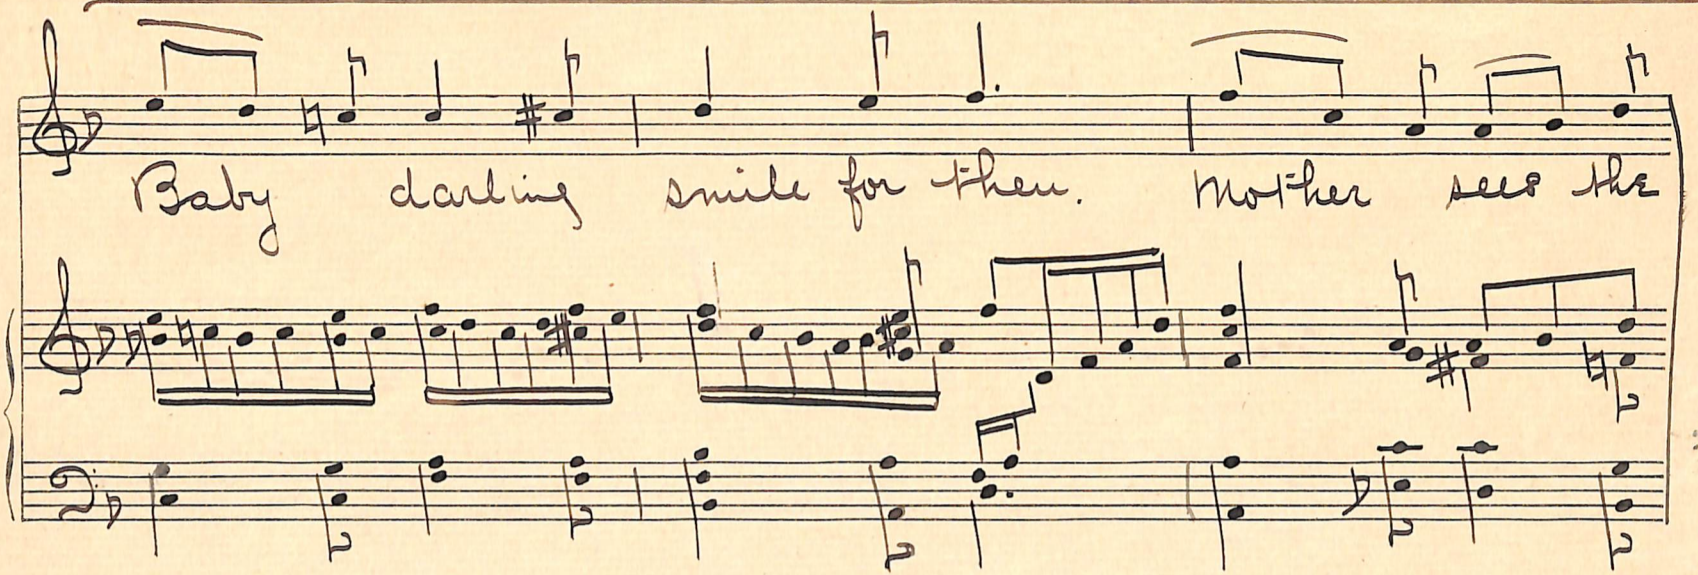 Baby darling smile for then. Mother sees the